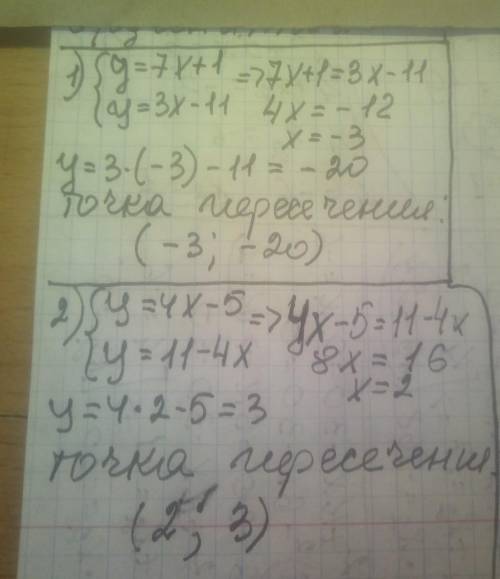 1) { y=7x+1 => 7x+1=3x-11
y=3x-11 4x=-12
x=-3
y=3·(-3)-11=-20
точка пересечения:
(-3; -20)
2) { y=4x-5 => 4x-5=11-4x
y=11-4x 8x=16
x=2
y=4·2-5=3
точка пересечения
(2; 3)